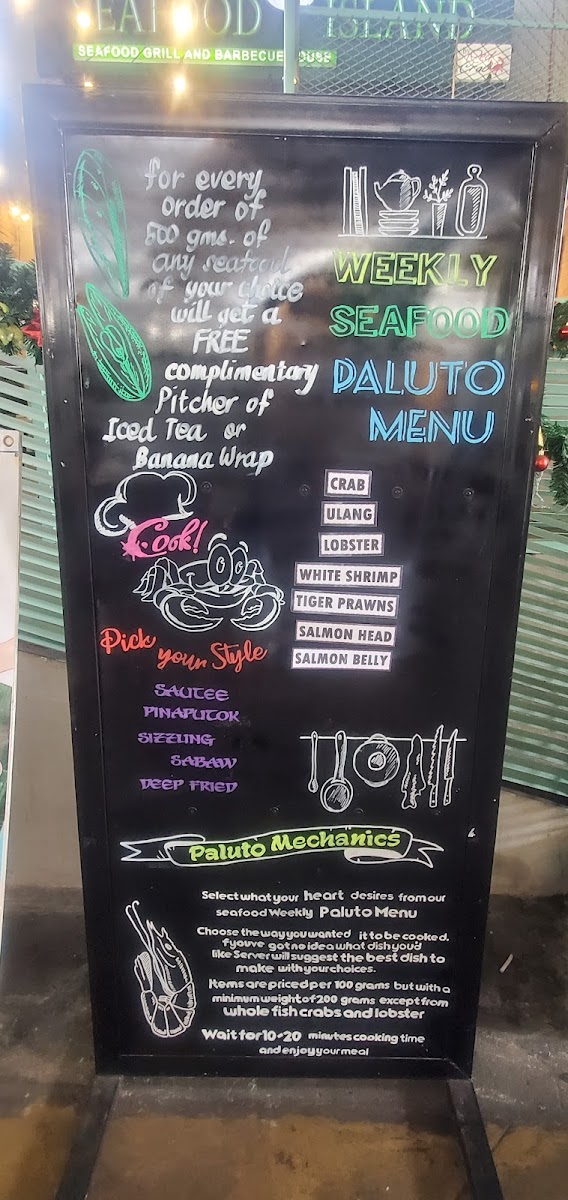 SEAFOOD ISLAND
SEAFOOD GRILL AND BARBECUE HOUSE
for every
order of
500 gms. of
any seafood
of your choice
will get a
FREE
complimentary
Pitcher of
Iced Tea or
Banana Wrap
WEEKLY
SEAFOOD
PALUTO
MENU
CRAB
ULANG
LOBSTER
WHITE SHRIMP
TIGER PRAWNS
SALMON HEAD
SALMON BELLY
Cook!
Pick
your Style
SAUTEE
PINAPUTOK
SIZZLING
SABAW
DEEP FRIED
Paluto Mechanics
Select what your heart desires from our
seafood Weekly Paluto Menu
Choose the way you wanted it to be cooked.
f youve got no idea what dish you'd
like Server will suggest the best dish to
make with your choices.
Items are priced per 100 grams but with a
minimum weight of 200 grams except from
whole fish crabs and lobster
Wait for 10-20 minutes cooking time
and enjoy your meal